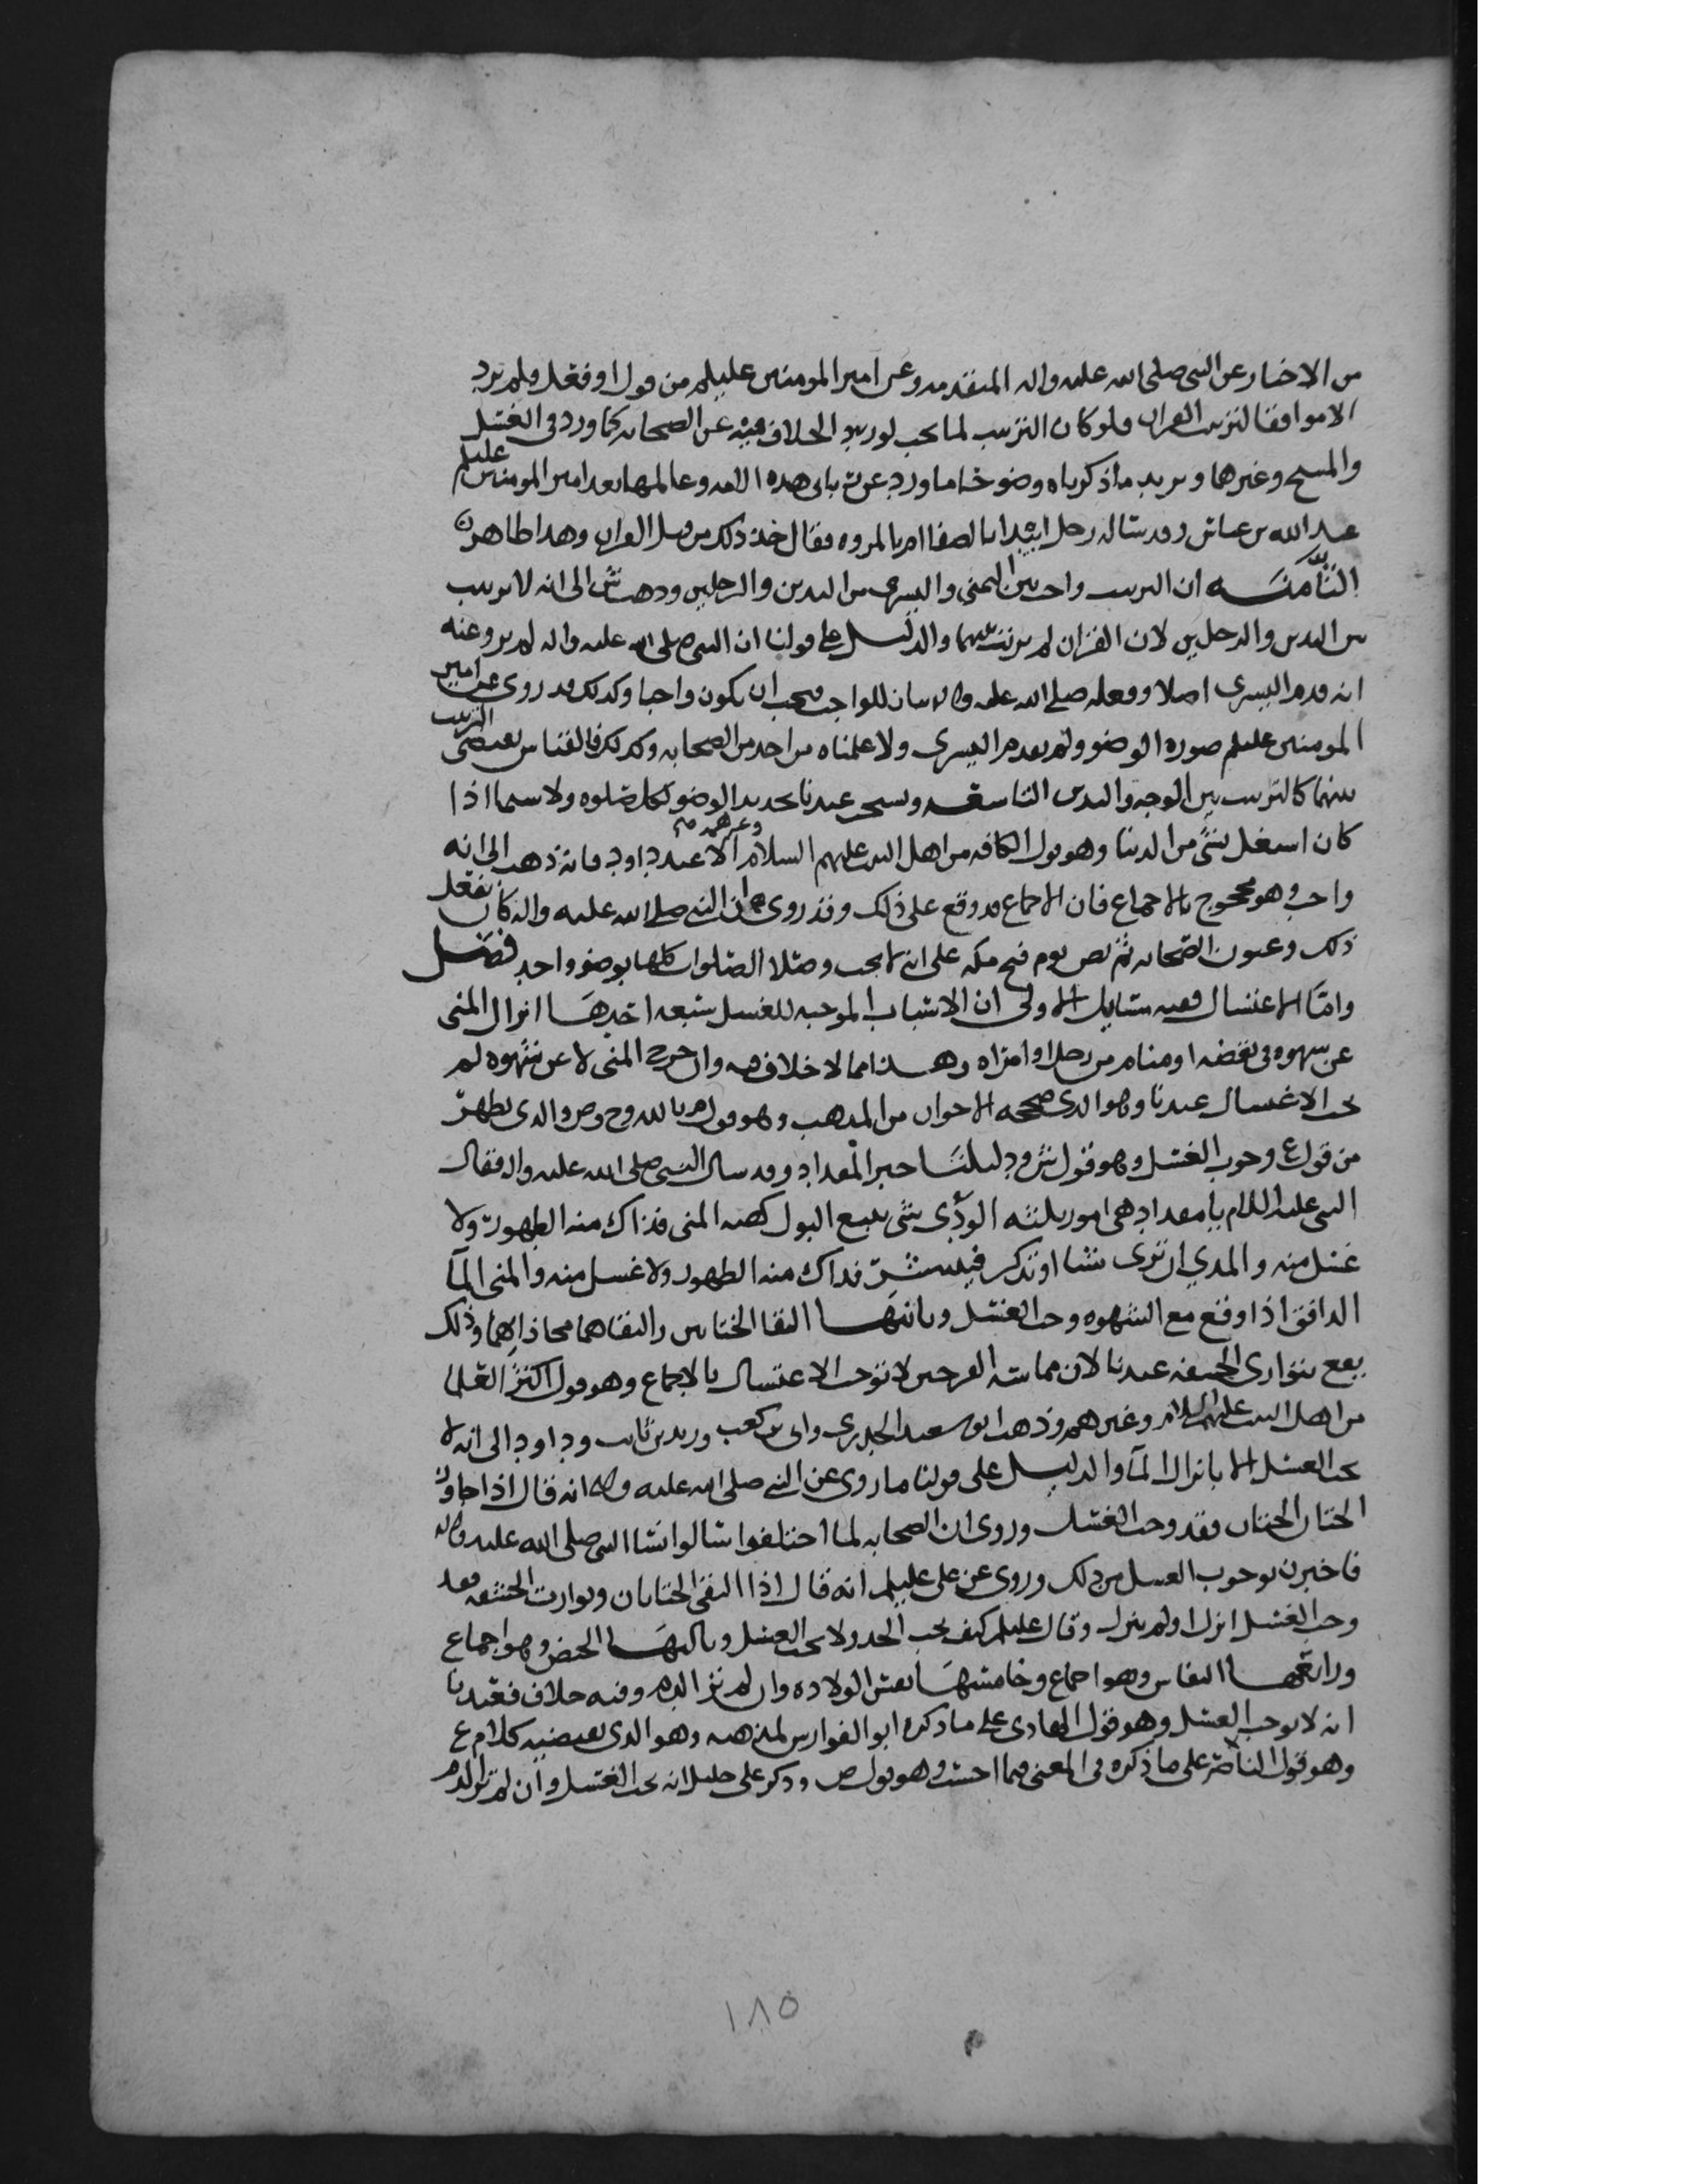 من الاخبار عن النبي صلى الله عليه واله المتقدمه وعن امير المومنين عليلم من قول او فعل ولم يرد
الا موافقا لترتيب القران فلو كان الترتيب لما يجب لورد الخلاف فيه عن الصحابه كما ورد في الغسل
والمسح وغيرهما ويزيد ما ذكرناه وضوحا ما ورد عن رباني هذه الامه وعالمها بعد امير المومنين عليلم
عبد الله بن عباس وقد ساله رجل ابتدا بالصفا ام بالمروه فقال خذ ذلك من قبل القران وهذا ظاهر
الثامنه ان الترتيب واجب بين اليمنى واليسرى من اليدين والرجلين وذهب ش الى انه لا ترتيب
بين اليدين والرجلين لان القران لم يرتب بينهما والدليل على قولنا ان النبي صلى الله عليه واله لم يرو عنه
انه قدم اليسرى اصلا وفعله صلى الله عليه واله بيان للواجب فيجب ان يكون واجبا وكذلك قد روى عن امير
المومنين عليلم صوره الوضو ولم يقدم اليسرى ولا علمناه من احد من الصحابه وكذلك فالقياس يقتضي الترتيب
بينهما كالترتيب بين الوجه واليدين التاسعه ويستحب عندنا تجديد الوضو لكل صلوه ولا سيما اذا
كان اشتغل بشي من الدنيا وهو قول الكافه من اهل البيت عليهم السلام وغيرهم الا عند داود فانه ذهب الى انه
واجب وهو محجوج بالاجماع فان الاجماع قد وقع على ذلك وقد روي ان النبي صلى الله عليه واله كان يفعل
ذلك وعيون الصحابه ثم نص يوم فتح مكه على انه لا يجب وصلا الصلوات كلها بوضو واحد فصل
وامّا الاغتسال ففيه مسايل الاولى ان الاسباب الموجبه للغسل سبعه احدها انزال المنى
عن شهوه في يقضه او منام من رجل او امراه وهذا مما لا خلاف فيه وان خرج المنى لا عن شهوه لم
يجب الاغتسال عندنا وهو الذي صححه الاخوان من المذهب وهو قول م بالله وح وص والذي يظهر
من قول ع وجوب الغسل وهو قول ش ود ليلنا خبر المقداد وقد سال النبي صلى الله عليه واله فقال
النبي عليه السلام يا مقداد هي امور ثلثه الودي شي يتبع البول كهيه المني فذاك منه الطهور ولا
غسل منه والمذي ان ترى شيا او تذكر فينتشر فذاك منه الطهور ولا غسل منه والمنى المآ
الدافق اذا وقع مع الشهوه وجب الغسل وثانيها التقا الختانين والتقاهما محاذاتهما وذلك
يقع بتوارى الحشفه عندنا لان مماسه الفرجين لا توجب الاغتسال بالاجماع وهو قول اكثر العلما
من اهل البيت عليهم السلام وغيرهم وذهب ابو سعيد الخدري وابي بن كعب وزيد بن ثابت وداود الى انه لا
يجب الغسل الا بانزال المآ والدليل على قولنا ما روي عن النبي صلى الله عليه واله انه قال اذا جاوز
الختان الختان فقد وجب الغسل وروى ان الصحابه لما اختلفوا سالوا نسا النبي صلى الله عليه واله
فاخبرن بوجوب الغسل من ذلك وروى عن علي عليلم انه قال اذا التقى الختانان وتوارت الحشفه فقد
وجب الغسل انزل او لم ينزل وقال عليلم كيف يجب الحد ولا يجب الغسل وثالثها الحيض وهو اجماع
ورابعها النفاس وهو اجماع وخامسها نفس الولاده وان لم تر الدم وفيه خلاف فعندنا
انه لا يوجب الغسل وهو قول الهادي على ما ذكره ابو الفوارس لمذهبه وهو الذي يقتضيه كلام ع
وهو قول الناصر على ما ذكره في المعنى فيما احسب وهو قول ص وذكر علي خليل انه يجب الغسل وان لم تر الدم
١٨٥